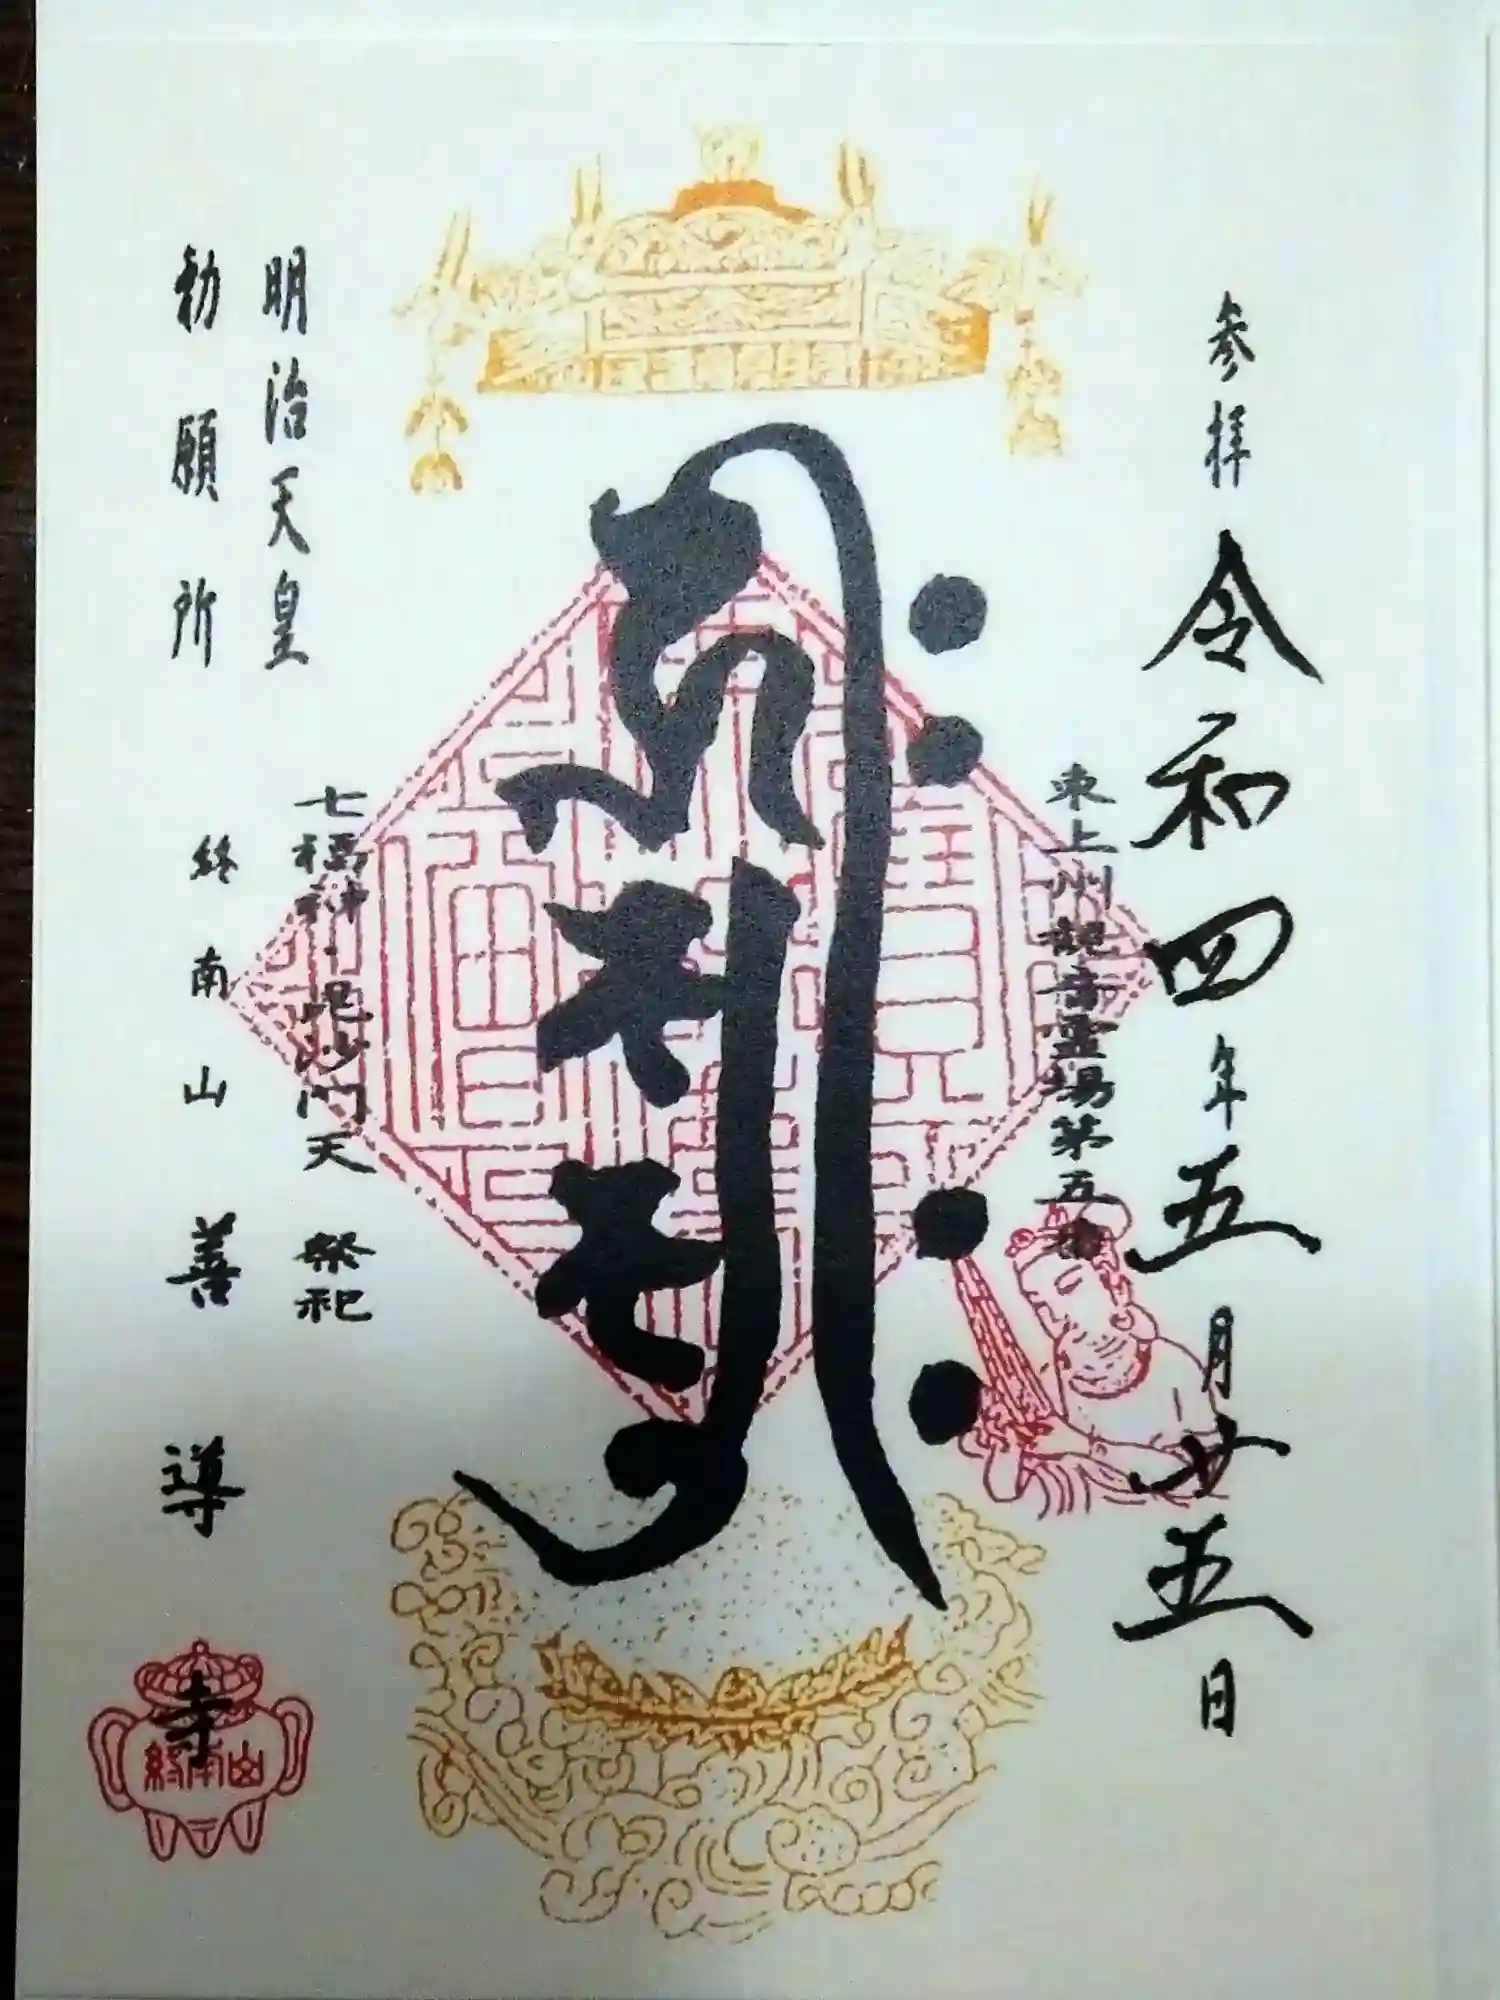 参拝 令和四年五月廿五日
東上州観音霊場第五番
七福神・毘沙門天 祭祀
明治天皇
勅願所
終南山 善導寺
終南山